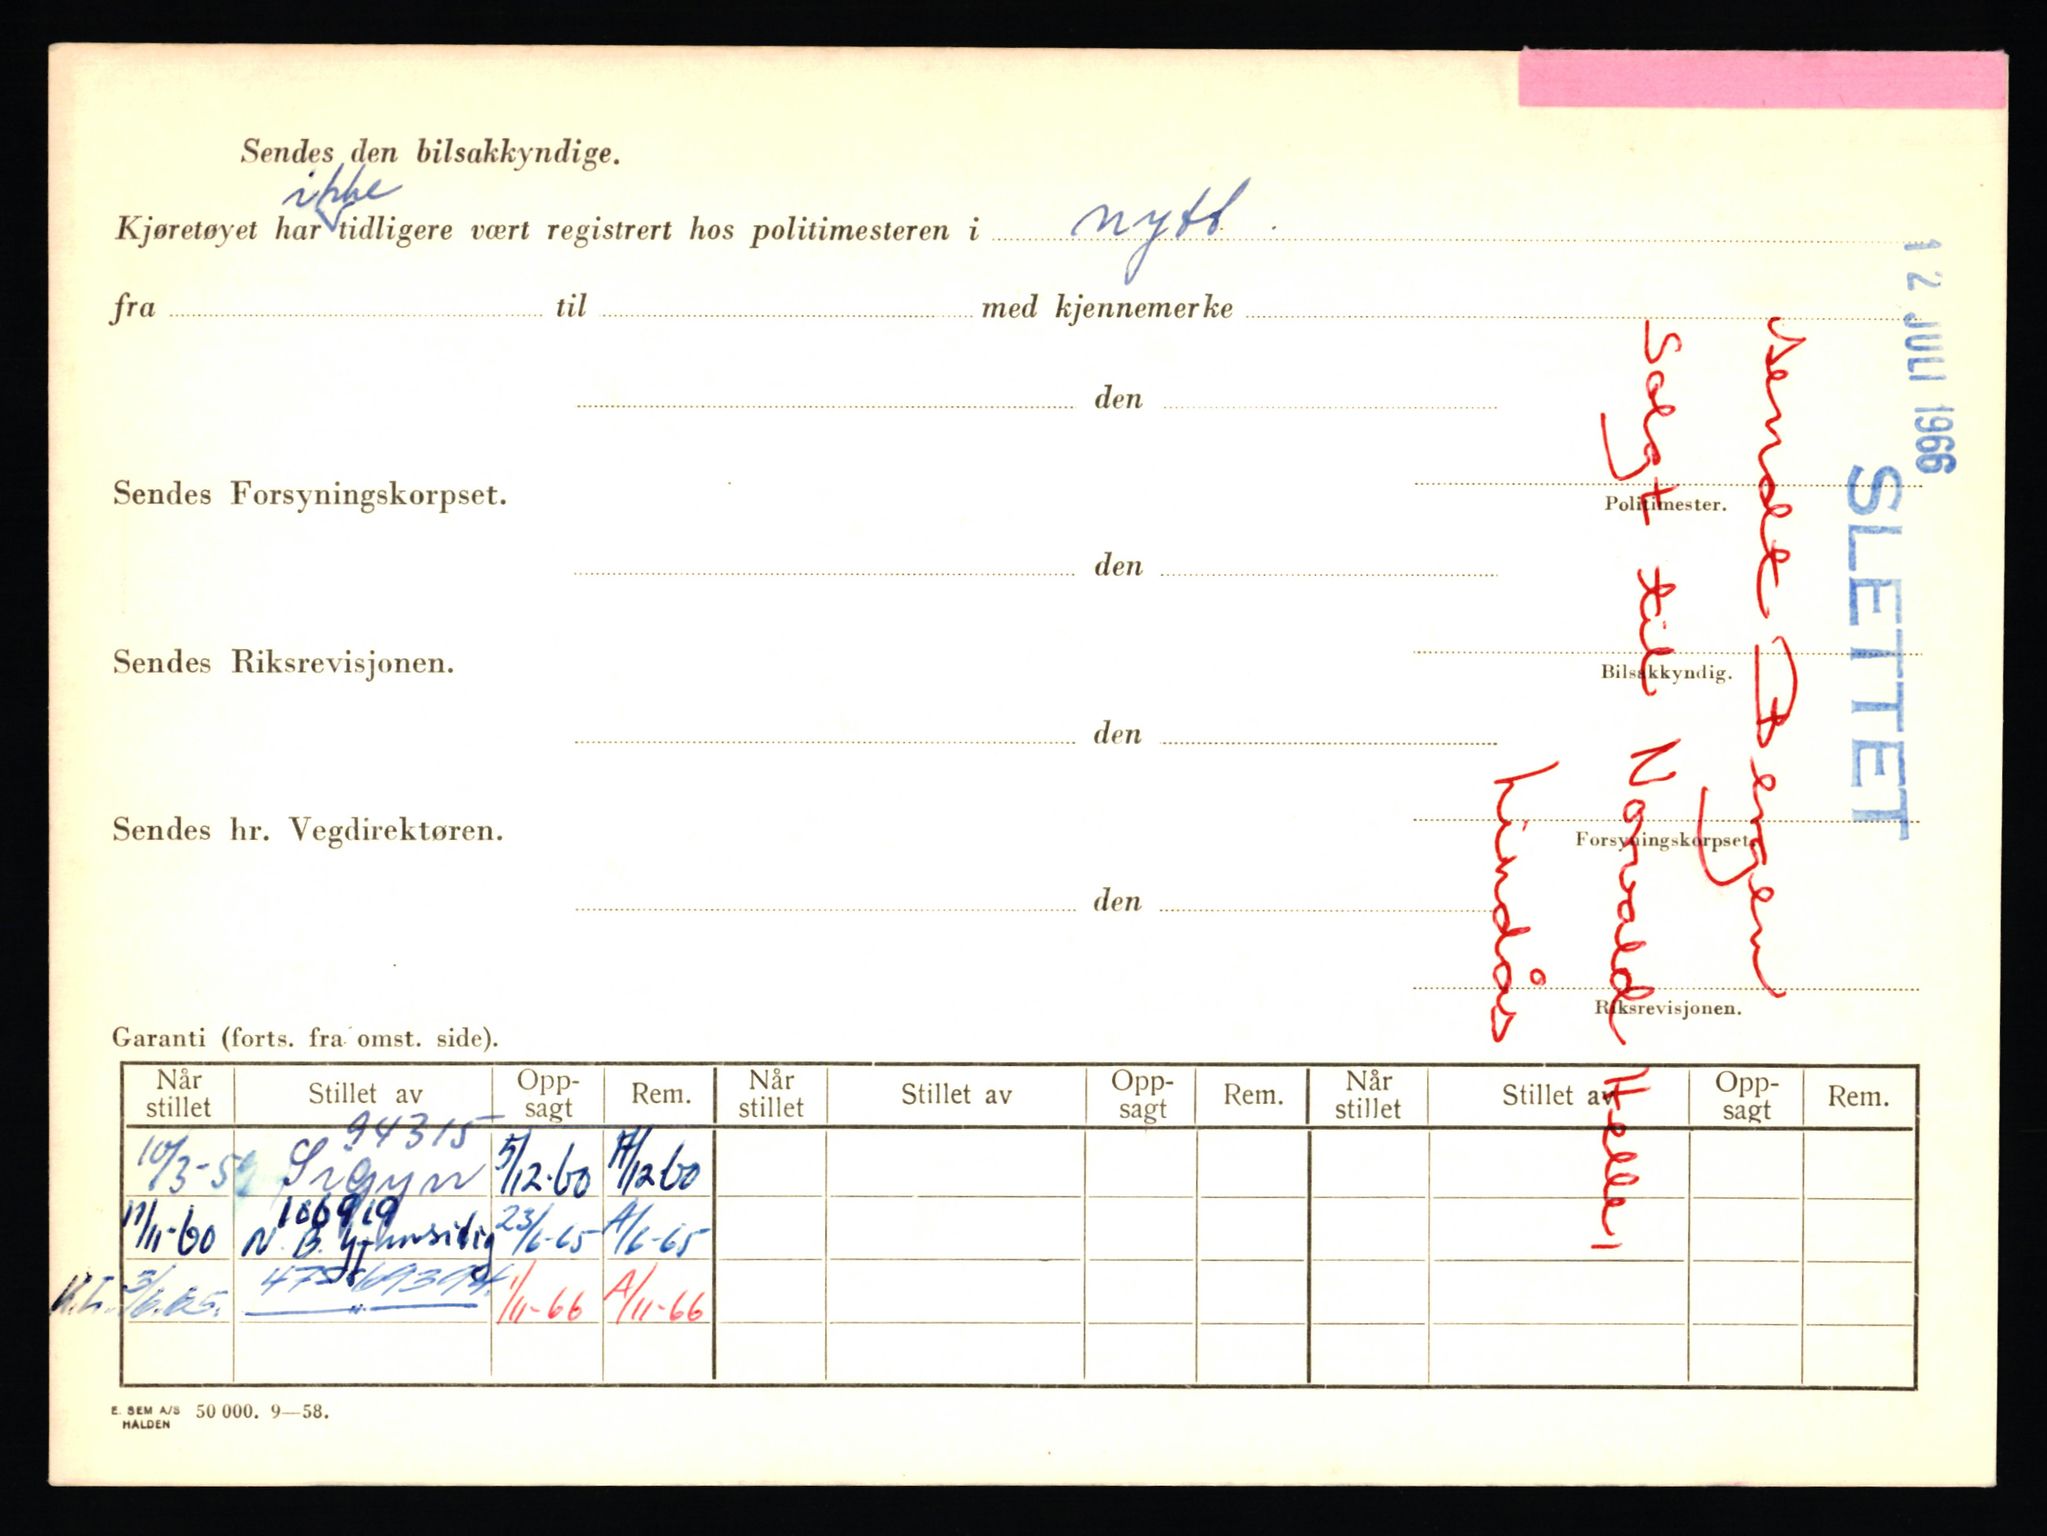 Sendes den bilsakkyndige.
ikke
Kjøretøyet har tidligere vært registrert hos politimesteren i nytt.
fra til med kjennemerke
den
Politimester.
Sendes Forsyningskorpset.
den
Bilsakkyndig.
Sendes Riksrevisjonen.
den
Forsyningskorpset.
Sendes hr. Vegdirektøren.
den
Riksrevisjonen.
12 JULI 1966
SLETTET
Sendt Bergen
Solgt til Norvald Helle
Lindås
Garanti (forts. fra omst. side).
Når stillet Stillet av Opp-sagt Rem. Når stillet Stillet av Opp-sagt Rem. Når stillet Stillet av Opp-sagt Rem.
94315
10/3-59 Sigyn 5/12-60 A/12-60
106919
11/11-60 N. B. Gjensidig 23/6-65 A/6-65
3/6.65. — " — 1/11-66 A/11-66
E. SEM A/S HALDEN 50 000. 9—58.